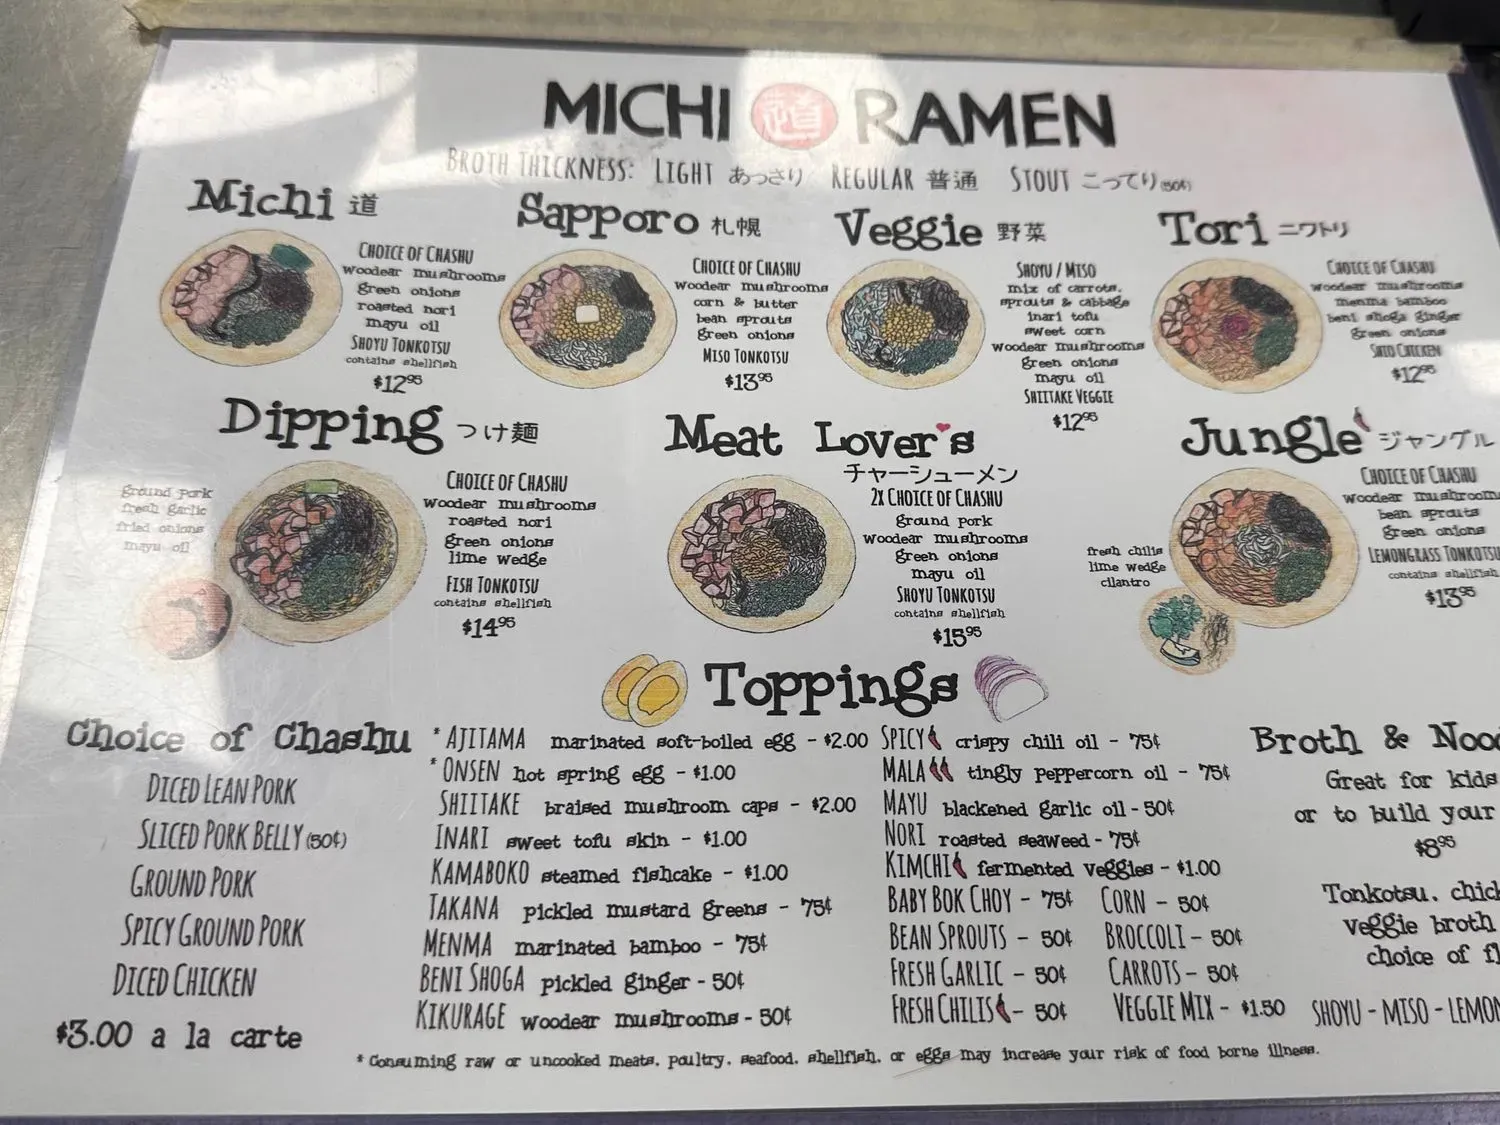 MICHI 道 RAMEN
BROTH THICKNESS: LIGHT あっさり REGULAR 普通 STOUT こってり (50¢)
Michi 道
CHOICE OF CHASHU
woodear mushrooms
green onions
roasted nori
mayu oil
SHOYU TONKOTSU
contains shellfish
$12⁹⁵
Sapporo 札幌
CHOICE OF CHASHU
woodear mushrooms
corn & butter
bean sprouts
green onions
MISO TONKOTSU
$13⁹⁵
Veggie 野菜
SHOYU / MISO
mix of carrots,
sprouts & cabbage
inari tofu
sweet corn
woodear mushrooms
green onions
mayu oil
SHIITAKE VEGGIE
$12⁹⁵
Tori ニワトリ
CHOICE OF CHASHU
woodear mushrooms
menma bamboo
beni shoga ginger
green onions
CHICKEN
$12⁹⁵
Dipping つけ麺
ground pork
fresh garlic
fried onions
mayu oil
CHOICE OF CHASHU
woodear mushrooms
roasted nori
green onions
lime wedge
FISH TONKOTSU
contains shellfish
$14⁹⁵
Meat Lover's
チャーシューメン
2X CHOICE OF CHASHU
ground pork
woodear mushrooms
green onions
mayu oil
SHOYU TONKOTSU
contains shellfish
$15⁹⁵
Jungle ジャングル
CHOICE OF CHASHU
woodear mushrooms
bean sprouts
green onions
LEMONGRASS TONKOTSU
contains shellfish
$13⁹⁵
fresh chilis
lime wedge
cilantro
Toppings
Choice of Chashu
DICED LEAN PORK
SLICED PORK BELLY (50¢)
GROUND PORK
SPICY GROUND PORK
DICED CHICKEN
$3.00 a la carte
*AJITAMA marinated soft-boiled egg - $2.00
*ONSEN hot spring egg - $1.00
SHIITAKE braised mushroom caps - $2.00
INARI sweet tofu skin - $1.00
KAMABOKO steamed fishcake - $1.00
TAKANA pickled mustard greens - 75¢
MENMA marinated bamboo - 75¢
BENI SHOGA pickled ginger - 50¢
KIKURAGE woodear mushrooms - 50¢
SPICY crispy chili oil - 75¢
MALA tingly peppercorn oil - 75¢
MAYU blackened garlic oil - 50¢
NORI roasted seaweed - 75¢
KIMCHI fermented veggies - $1.00
BABY BOK CHOY - 75¢ CORN - 50¢
BEAN SPROUTS - 50¢ BROCCOLI - 50¢
FRESH GARLIC - 50¢ CARROTS - 50¢
FRESH CHILIS - 50¢ VEGGIE MIX - $1.50
Broth & Noo
Great for kids
or to build your
$8⁹⁵
Tonkotsu, chic
veggie broth
choice of fl
SHOYU - MISO - LEMON
* Consuming raw or uncooked meats, poultry, seafood, shellfish, or eggs may increase your risk of food borne illness.